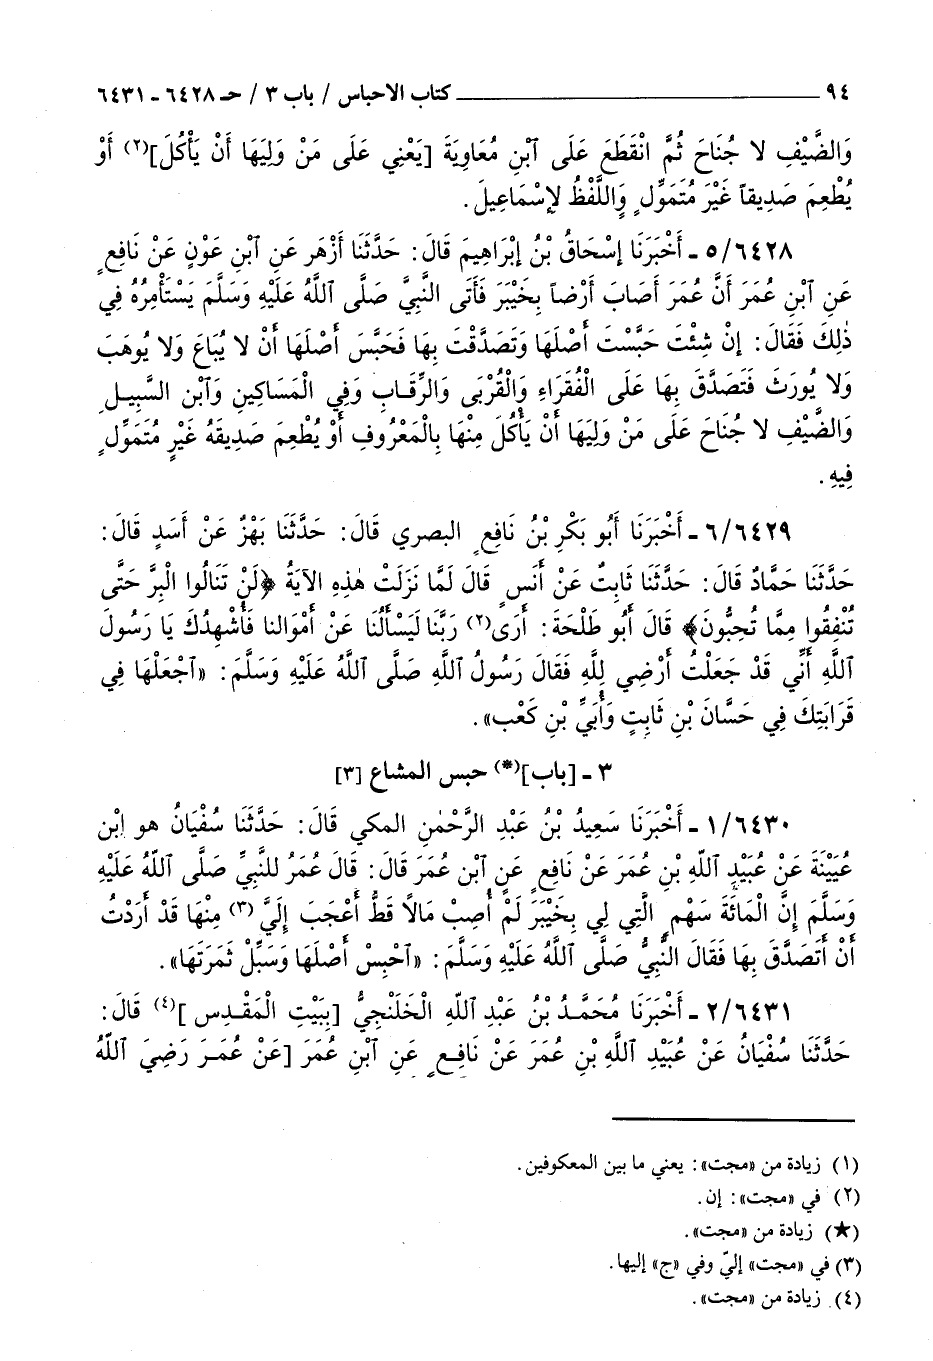 ٩٤ ــــــــــــــــــــــــــــــــ كتاب الاحباس / باب ٣ / حـ ٦٤٢٨ - ٦٤٣١
وَالضَّيْفِ لا جُنَاحَ ثُمَّ انْقَطَعَ عَلَى ٱبْنِ مُعَاوِيَةَ [يَعْنِي عَلَى مَنْ وَلِيَهَا أَنْ يَأْكُلَ](٢) أَوْ
يُطْعِمَ صَدِيقاً غَيْرَ مُتَمَوِّلٍ وَاللَّفْظُ لإِسْمَاعِيلَ.
٥/٦٤٢٨ - أَخْبَرَنَا إِسْحَاقُ بْنُ إِبْرَاهِيمَ قَالَ: حَدَّثَنَا أَزْهَر عَنِ ٱبْنِ عَوْنٍ عَنْ نَافِعٍ
عَنِ ٱبْنِ عُمَرَ أَنَّ عُمَرَ أَصَابَ أَرْضاً بِخَيْبَرَ فَأَتَى النَّبِيَّ صَلَّى ٱللَّهُ عَلَيْهِ وَسَلَّمَ يَسْتَأْمِرُهُ فِي
ذٰلِكَ فَقَالَ: إِنْ شِئْتَ حَبَّسْتَ أَصْلَهَا وَتَصَدَّقْتَ بِهَا فَحَبَّسَ أَصْلَهَا أَنْ لا يُبَاعَ وَلا يُوهَبَ
وَلا يُورَثَ فَتَصَدَّقَ بِهَا عَلَى الْفُقَرَاءِ وَالْقُرْبَى وَالرِّقَابِ وَفِي الْمَسَاكِينِ وَٱبْنِ السَّبِيلِ
وَالضَّيْفِ لا جُنَاحَ عَلَى مَنْ وَلِيَهَا أَنْ يَأْكُلَ مِنْهَا بِالْمَعْرُوفِ أَوْ يُطْعِمَ صَدِيقَهُ غَيْرِ مُتَمَوِّلٍ
فِيهِ.
٦/٦٤٢٩ - أَخْبَرَنَا أَبُو بَكْرِ بْنُ نَافِعٍ البصري قَالَ: حَدَّثَنَا بَهْزٌ عَنْ أَسَدٍ قَالَ:
حَدَّثَنَا حَمَّادٌ قَالَ: حَدَّثَنَا ثَابِتٌ عَنْ أَنَسٍ قَالَ لَمَّا نَزَلَتْ هٰذِهِ الآيَةُ ﴿لَنْ تَنَالُوا الْبِرَّ حَتَّى
تُنْفِقُوا مِمَّا تُحِبُّونَ﴾ قَالَ أَبُو طَلْحَةَ: أَرَى(٢) رَبَّنَا لَيَسْأَلُنَا عَنْ أَمْوَالنا فَأُشْهِدُكَ يَا رَسُولَ
ٱللَّهِ أَنِّي قَدْ جَعَلْتُ أَرْضِي لِلَّهِ فَقَالَ رَسُولُ ٱللَّهِ صَلَّى ٱللَّهُ عَلَيْهِ وَسَلَّمَ: «ٱجْعَلْهَا فِي
قَرَابَتِكَ فِي حَسَّانَ بْنِ ثَابِتٍ وَأُبَيِّ بْنِ كَعْب».
٣ - [باب](*) حبس المشاع [٣]
١/٦٤٣٠ - أَخْبَرَنَا سَعِيدُ بْنُ عَبْدِ الرَّحْمٰنِ المكي قَالَ: حَدَّثَنَا سُفْيَانُ هو ابْن
عُيَيْنَةَ عَنْ عُبَيْدِ ٱللّهِ بْنِ عُمَرَ عَنْ نَافِعٍ عَنِ ٱبْنِ عُمَرَ قَالَ: قَالَ عُمَرُ للنَّبِيِّ صَلَّى ٱللّهُ عَلَيْهِ
وَسَلَّمَ إِنَّ الْمَائَةَ سَهْمٍ الَّتِي لِي بِخَيْبَرَ لَمْ أُصِبْ مَالاً قَطُّ أَعْجَبَ إِلَيَّ(٣) مِنْهَا قَدْ أَرَدْتُ
أَنْ أَتَصَدَّقَ بِهَا فَقَالَ النَّبِيُّ صَلَّى ٱللَّهُ عَلَيْهِ وَسَلَّمَ: «ٱحْبِسْ أَصْلَهَا وَسَبِّلْ ثَمَرَتَهَا».
٢/٦٤٣١ - أَخْبَرَنَا مُحَمَّدُ بْنُ عَبْدِ ٱللّهِ الْخَلَنْجِيُّ [بِبَيْتِ الْمَقْدِسِ](٤) قَالَ:
حَدَّثَنَا سُفْيَانُ عَنْ عُبَيْدِ ٱللَّهِ بْنِ عُمَرَ عَنْ نَافِعٍ عَنِ ٱبْنِ عُمَرَ [عَنْ عُمَرَ رَضِيَ ٱللّهُ
(١) زيادة من «مجت»: يعني ما بين المعكوفين.
(٢) في «مجت»: إن.
(★) زيادة من «مجت».
(٣) في «مجت» إليّ وفي «ج» إليها.
(٤) زيادة من «مجت».